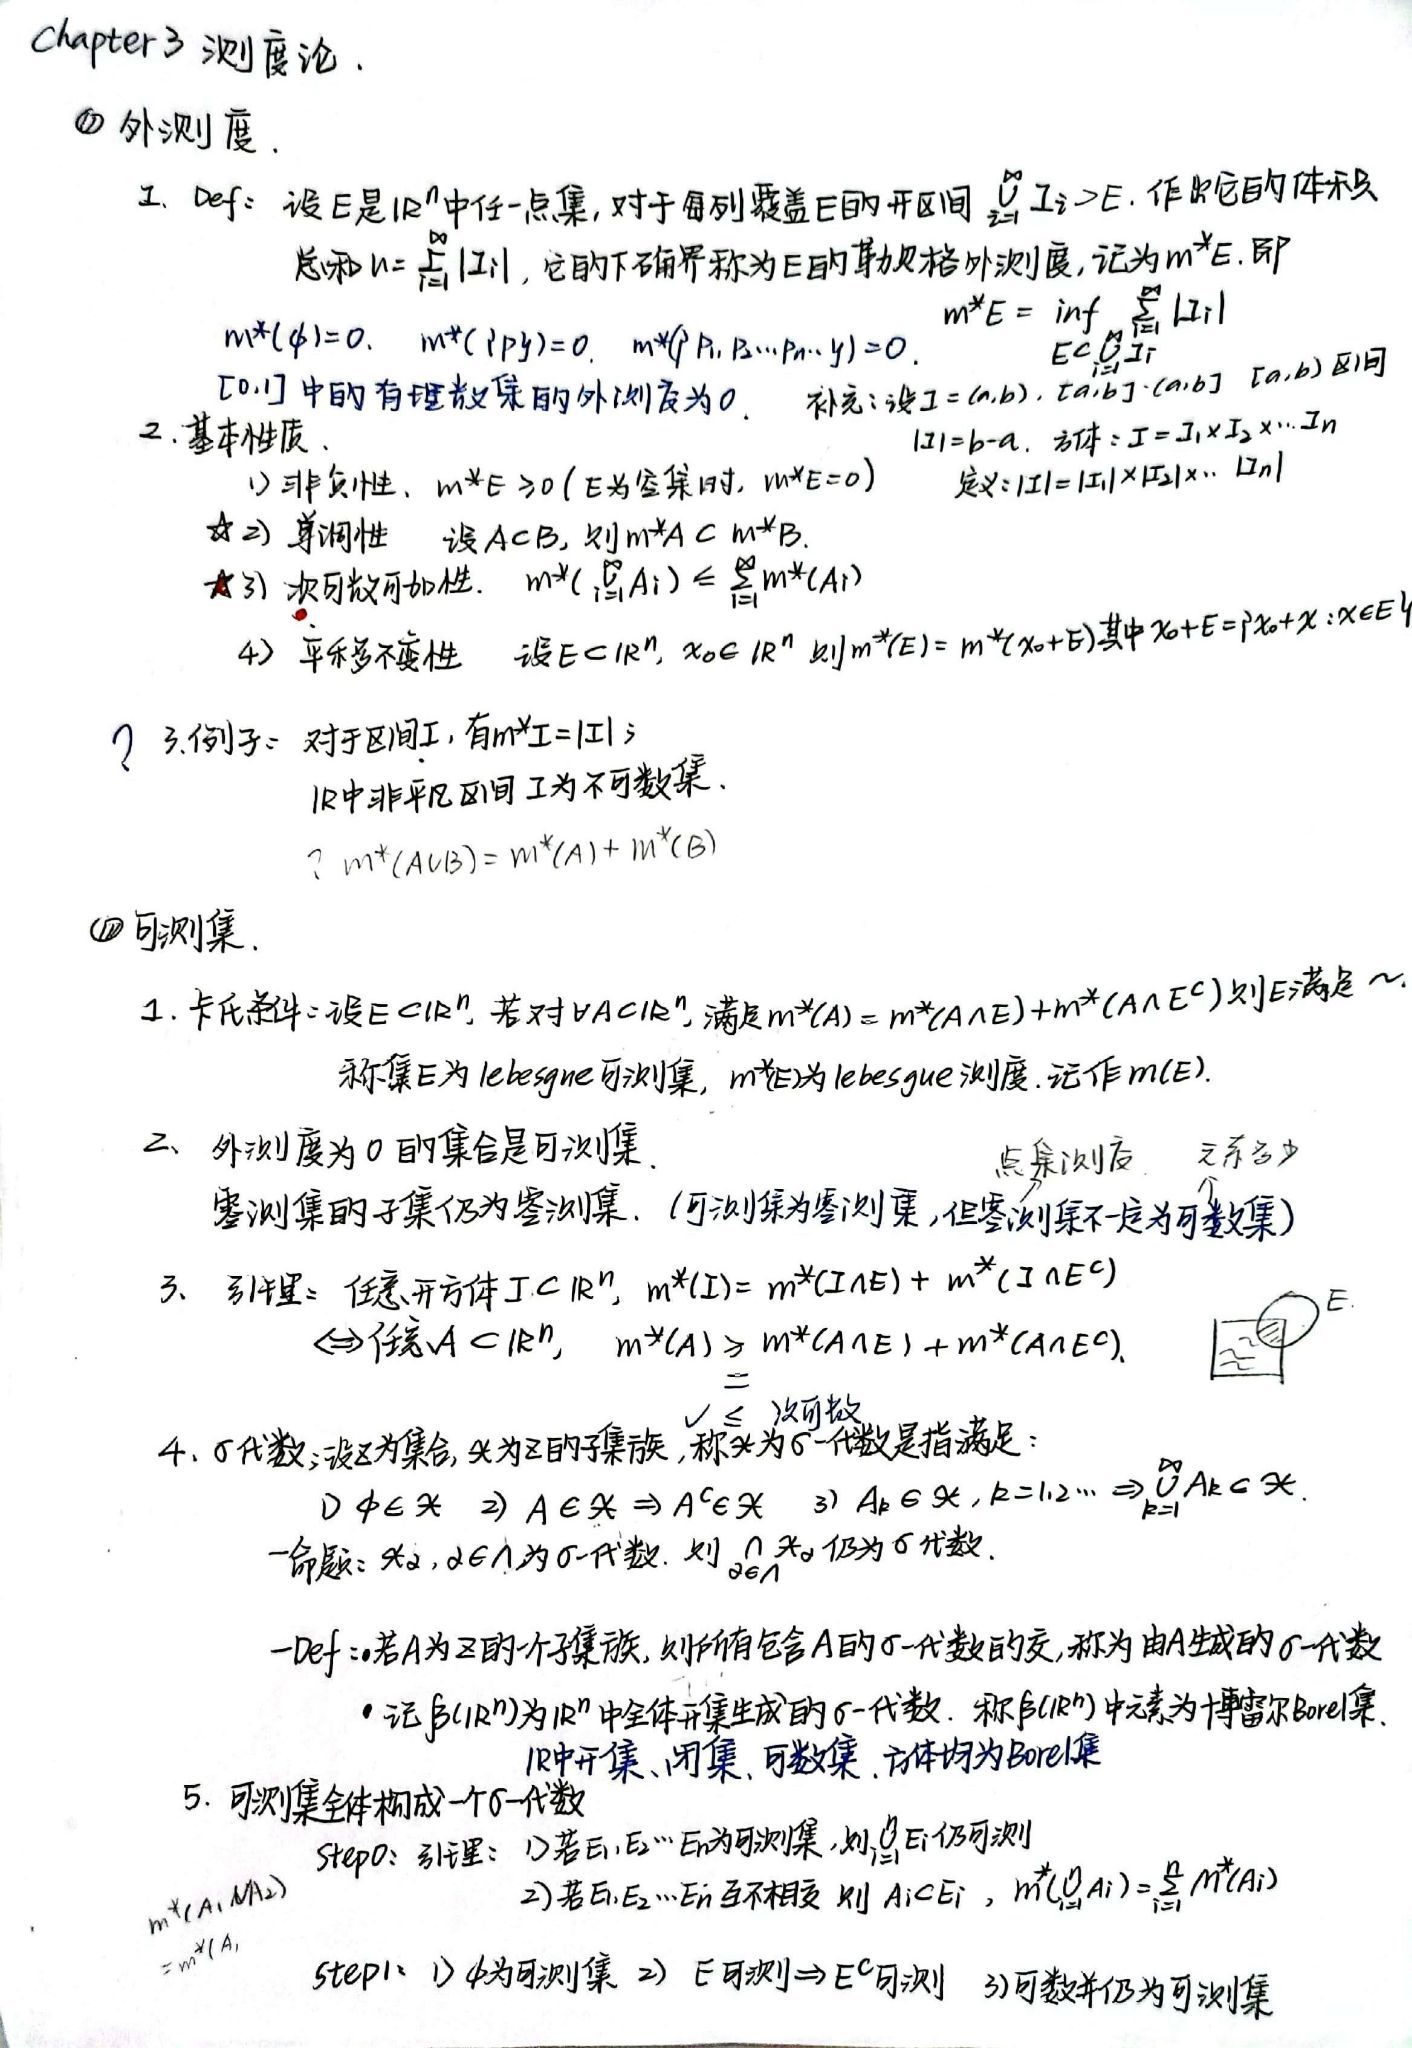 Chapter 3 测度论.
(1) 外测度.
1. Def: 设E是ℝⁿ中任一点集, 对于每列覆盖E的开区间 ⋃_{i=1}^∞ Iᵢ⊃E. 作出它的体积
总和 u=∑_{i=1}^∞ |Iᵢ|, 它的下确界称为E的勒贝格外测度, 记为m*E. 即
m*E = inf_{E⊂⋃_{i=1}^∞ Iᵢ} ∑_{i=1}^∞ |Iᵢ|
m*(φ)=0. m*({p})=0. m*({P₁, P₂…Pₙ…})=0.
[0,1] 中的有理数集的外测度为0.
补充: 设I=(a,b), [a,b]. (a,b] [a,b) 区间
|I|=b-a. 方体: I=I₁×I₂×…Iₙ
定义: |I|=|I₁|×|I₂|×… |Iₙ|
2. 基本性质.
1) 非负性. m*E≥0 (E为空集时, m*E=0)
☆2) 单调性 设A⊂B, 则m*A⊂m*B.
★3) 次可数可加性. m*(⋃_{i=1}^∞ Aᵢ) ≤ ∑_{i=1}^∞ m*(Aᵢ)
4) 平移不变性 设E⊂ℝⁿ, x₀∈ℝⁿ 则m*(E)=m*(x₀+E)其中x₀+E={x₀+x:x∈E}
? 3. 例子: 对于区间I, 有m*I=|I|;
ℝ中非平凡区间I为不可数集.
? m*(A∪B)=m*(A)+m*(B)
(2) 可测集.
1. 卡氏条件: 设E⊂ℝⁿ, 若对∀A⊂ℝⁿ, 满足m*(A)=m*(A∩E)+m*(A∩Eᶜ) 则E满足~.
称集E为lebesgue可测集, m*(E)为lebesgue测度. 记作m(E).
2、 外测度为0的集合是可测集.
点集测度 元素多少
零测集的子集仍为零测集. (可测集为零测集, 但零测集不一定为可数集)
3、 引理: 任意开方体I⊂ℝⁿ, m*(I)=m*(I∩E)+m*(I∩Eᶜ)
E.
⇔任意A⊂ℝⁿ, m*(A)≥m*(A∩E)+m*(A∩Eᶜ).
=
✓≤ 次可数
4、σ代数: 设Z为集合, 𝒳为Z的子集族, 称𝒳为σ-代数是指满足:
1) φ∈𝒳 2) A∈𝒳⇒Aᶜ∈𝒳 3) Aₖ∈𝒳, k=1,2…⇒⋃_{k=1}^∞ Aₖ∈𝒳.
-命题: 𝒳_α, α∈Λ为σ-代数. 则 ⋂_{α∈Λ}𝒳_α 仍为σ代数.
-Def: •若A为Z的一个子集族, 则所有包含A的σ-代数的交, 称为由A生成的σ-代数
•记β(ℝⁿ)为ℝⁿ中全体开集生成的σ-代数. 称β(ℝⁿ)中元素为博雷尔Borel集.
ℝ中开集、闭集、可数集、方体均为Borel集
5. 可测集全体构成一个σ-代数
step0: 引理: 1)若E₁,E₂…Eₙ为可测集, 则⋃_{i=1}^n Eᵢ仍可测
2)若E₁,E₂…Eₙ互不相交 则 Aᵢ⊂Eᵢ, m*(⋃_{i=1}^n Aᵢ)=∑_{i=1}^n m*(Aᵢ)
m*(A₁∪A₂)
=m*(A₁
step1: 1) φ为可测集 2) E可测⇒Eᶜ可测 3)可数并仍为可测集